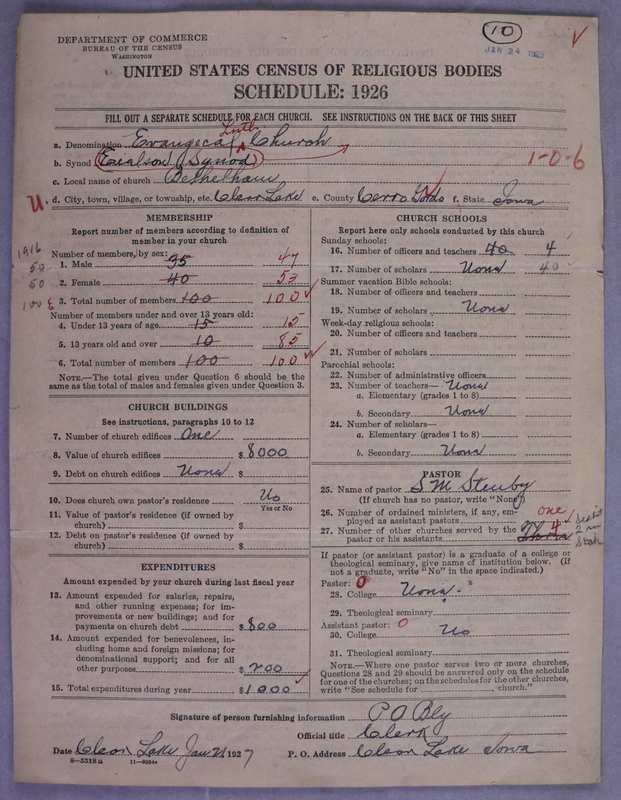 DEPARTMENT OF COMMERCE
BUREAU OF THE CENSUS
WASHINGTON
10
JAN 24 1927
UNITED STATES CENSUS OF RELIGIOUS BODIES
SCHEDULE: 1926
FILL OUT A SEPARATE SCHEDULE FOR EACH CHURCH. SEE INSTRUCTIONS ON THE BACK OF THIS SHEET
a. Denomination Evangecal Luth Church
b. Synod (Synod) 1-0-6
c. Local name of church
d. City, town, village, or township, etc. Clear Lake e. County Cerro Gordo f. State Iowa
MEMBERSHIP
Report number of members according to definition of
member in your church
1916
Number of members, by sex:
50 1. Male 35 47
50 2. Female 40 53
100 3. Total number of members 100 100
Number of members under and over 13 years old:
4. Under 13 years of age 15 15
5. 13 years old and over 10 85
6. Total number of members 100 100
NOTE.—The total given under Question 6 should be the
same as the total of males and females given under Question 3.
CHURCH BUILDINGS
See instructions, paragraphs 10 to 12
7. Number of church edifices One
8. Value of church edifices $ 8000
9. Debt on church edifices None $
10. Does church own pastor's residence No
Yes or No
11. Value of pastor's residence (if owned by
church) $
12. Debt on pastor's residence (if owned by
church) $
EXPENDITURES
Amount expended by your church during last fiscal year
13. Amount expended for salaries, repairs,
and other running expenses; for im-
provements or new buildings; and for
payments on church debt $ 800
14. Amount expended for benevolences, in-
cluding home and foreign missions; for
denominational support; and for all
other purposes $ 200
15. Total expenditures during year $ 1000
CHURCH SCHOOLS
Report here only schools conducted by this church
Sunday schools:
16. Number of officers and teachers 40 4
17. Number of scholars None 40
Summer vacation Bible schools:
18. Number of officers and teachers
19. Number of scholars None
Week-day religious schools:
20. Number of officers and teachers
21. Number of scholars
Parochial schools:
22. Number of administrative officers
23. Number of teachers— None
a. Elementary (grades 1 to 8)
b. Secondary None
24. Number of scholars—
a. Elementary (grades 1 to 8)
b. Secondary None
PASTOR
25. Name of pastor S M
(If church has no pastor, write "None")
26. Number of ordained ministers, if any, em-
ployed as assistant pastors one
27. Number of other churches served by the
pastor or his assistants 4
If pastor (or assistant pastor) is a graduate of a college or
theological seminary, give name of institution below. (If
not a graduate, write "No" in the space indicated.)
Pastor: 0
28. College None
29. Theological seminary
Assistant pastor: 0
30. College No
31. Theological seminary
NOTE.—Where one pastor serves two or more churches,
Questions 28 and 29 should be answered only on the schedule
for one of the churches; on the schedules for the other churches,
write "See schedule for church."
Signature of person furnishing information P.O. Bly
Official title Clerk
Date Clear Lake Jan 21, 1927 P. O. Address Clear Lake Iowa
8-5318a